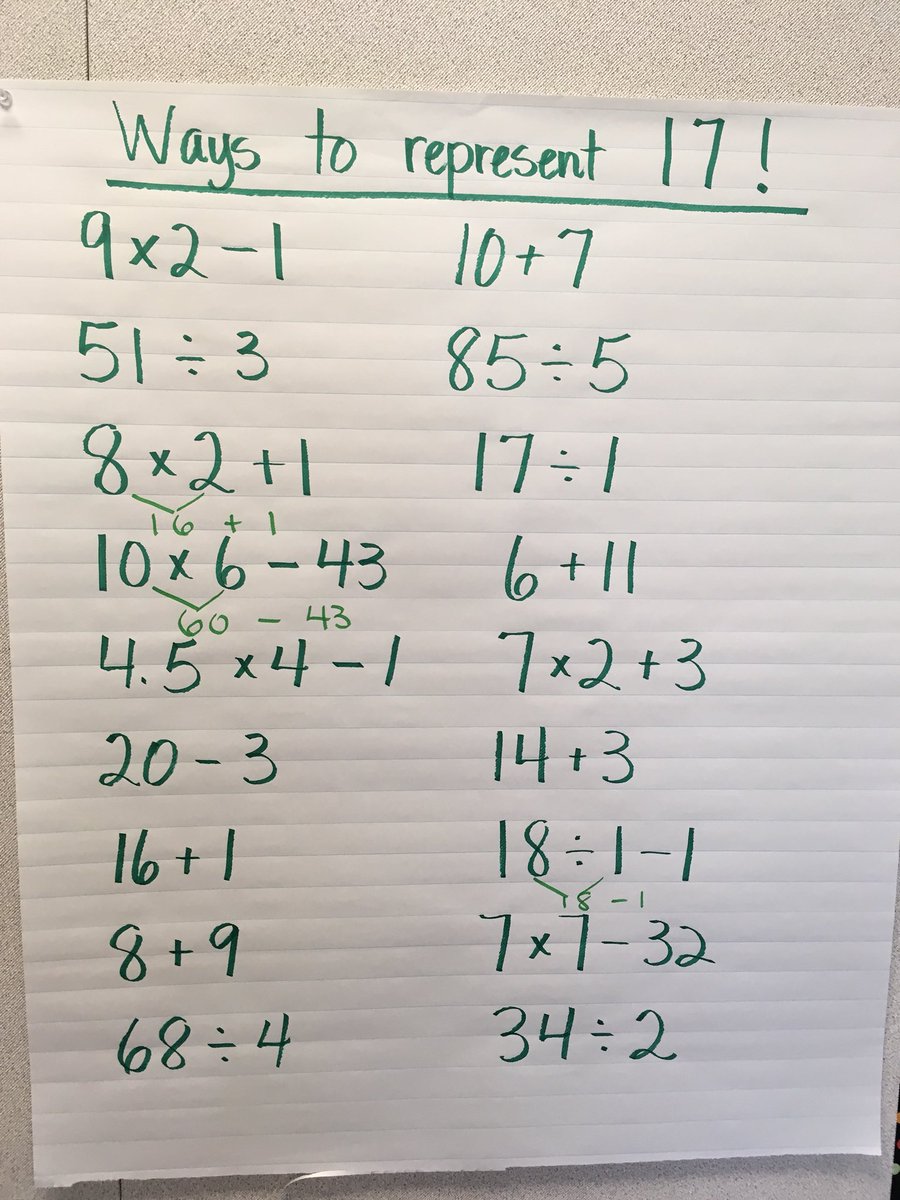 Ways to represent 17!
9×2−1 10+7
51÷3 85÷5
8×2+1 17÷1
16 + 1
10×6−43 6+11
60 − 43
4.5×4−1 7×2+3
20−3 14+3
16+1 18÷1−1
18−1
8+9 7×7−32
68÷4 34÷2